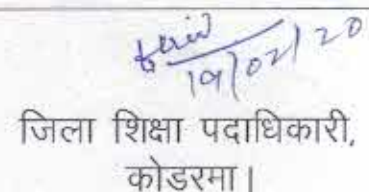 19/02/20
जिला शिक्षा पदाधिकारी,
कोडरमा।